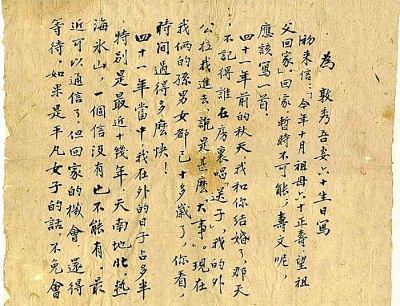 為 敦秀吾妻六十生日寫
初來信:“今年十月祖母六十正壽,望祖
父回家”。回家暫時不可能,壽文呢,
應該寫一首。
四十一年前的秋天,我和你結婚了,那天
不記得誰在房裏唱“送子”,我的外
公拉我進去,說是甚麽“大事”。現在
我倆的孫男女都已十多歲了,你看,
時間過得多麽快!
四十一年當中,我在外的日子占多半
特別是最近十幾年,天南地北,熱
海冰山,一個信没有也不能有。最
近可以通信了,但回家的機會還得
等待。如果是平凡女子的話,不免會